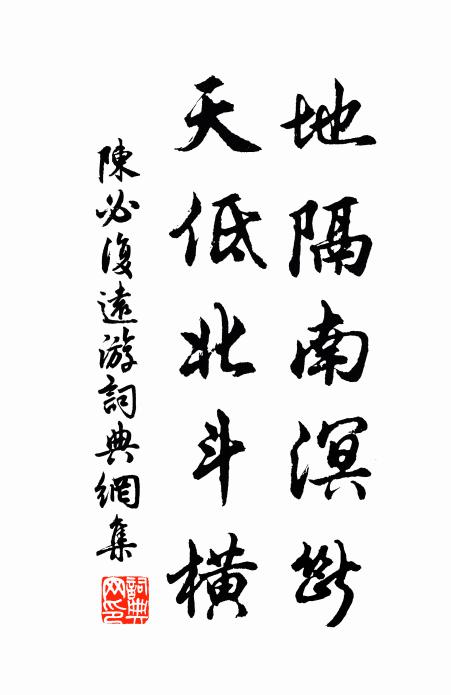 地隔南溟斷
天低北斗橫
陳必復遠游詞典網集
詞典網印